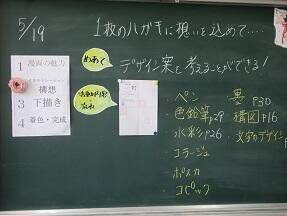 5/19
1枚のハガキに想いを込めて....
めあて
デザイン案を考えることができる!
1 漫画の魅力
構想
3 下描き
4 着色・完成
・ペン
・色鉛筆p29
・水彩p26
・コラージュ
・ポスカ
・コピック
・墨 p30
・構図p16
・文字のデザイン